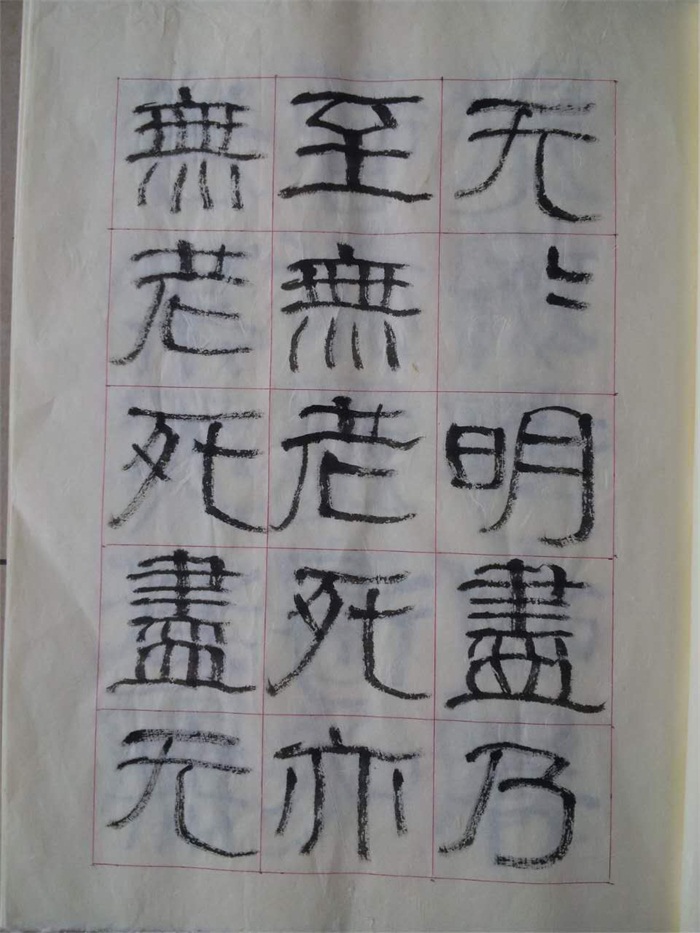 无〻明盡乃
至無老死亦
無老死盡无